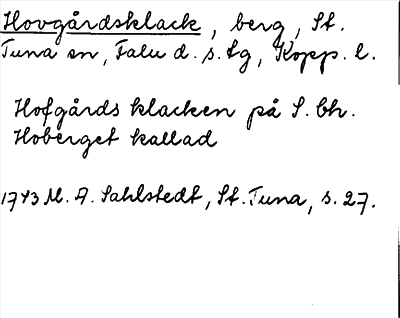 Hovgårdsklack, berg, St.
Tuna sn, Falu d. s. tg, Kopp. l.
Hofgårds klacken på S. bh.
Hoberget kallad
1743 M. A. Sahlstedt, St. Tuna, s. 27.